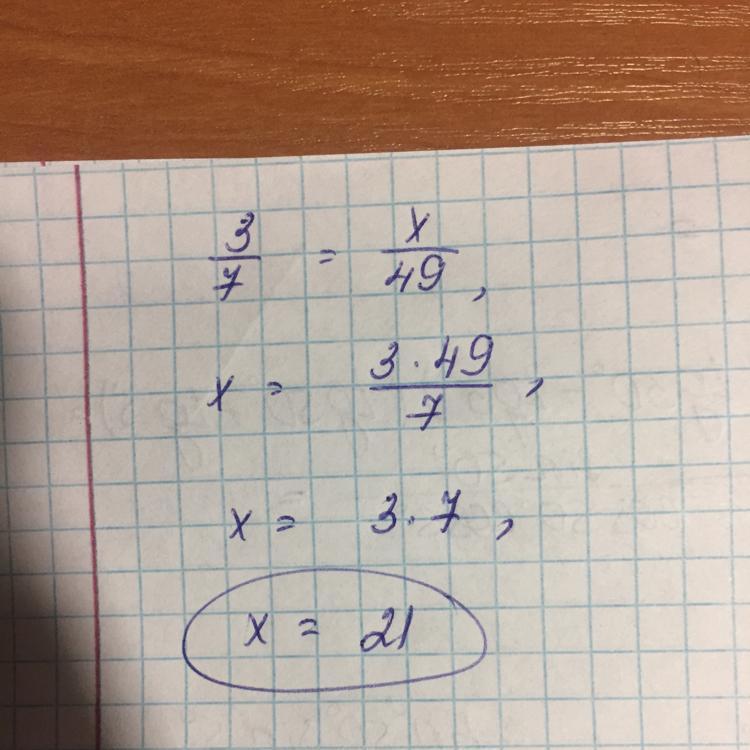 3/7 = x/49,
x = 3·49/7,
x = 3·7,
x = 21